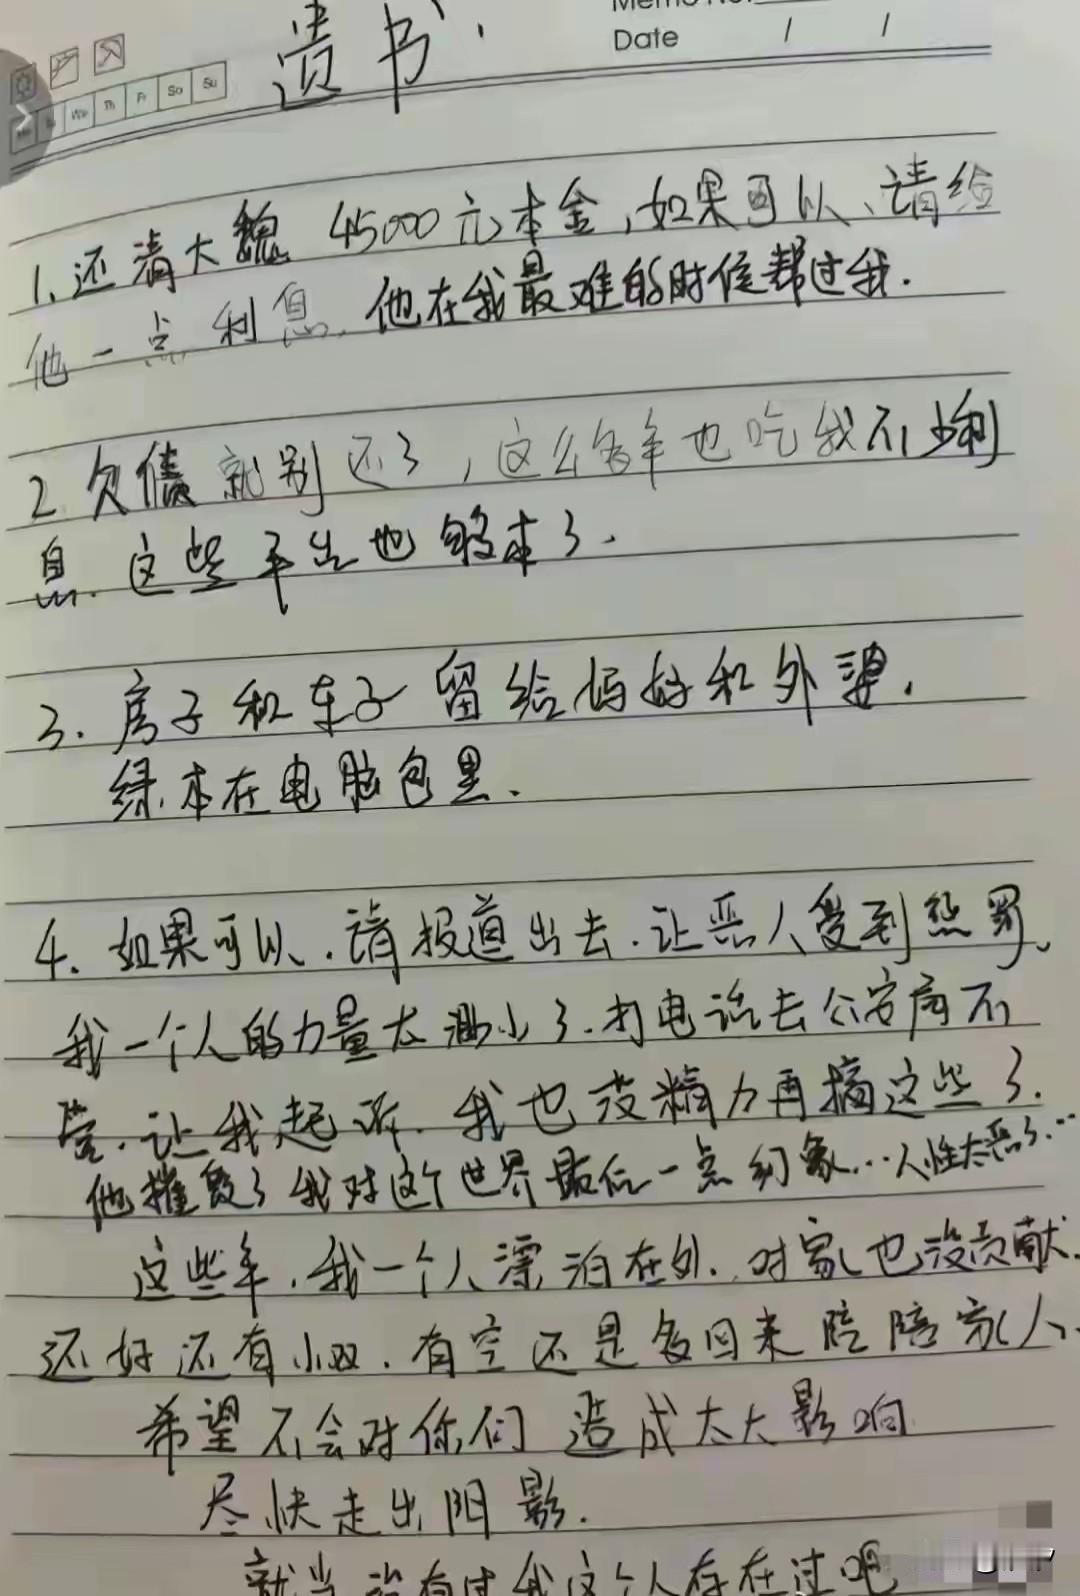 Memo No.
Date / /
Mo Tu We Th Fr Sa Su
遗书.
1. 还清大魏 45000元本金,如果可以、请给
他一点利息. 他在我最难的时候帮过我.
2. 欠债就别还了,这么多年也吃我不少利
息. 这些年出也够本了.
3. 房子和车子留给妈妈和外婆.
绿本在电脑包里.
4. 如果可以.请报道出去.让恶人受到惩罚、
我一个人的力量太渺小了.打电话去公安局不
管.让我起诉.我也没精力再搞这些了.
他摧毁了我对这个世界最后一点幻象...人性太恶了...
这些年.我一个人漂泊在外.对家也没贡献.
还好还有小双.有空还是多回来陪陪家人.
希望不会对你们造成太大影响
尽快走出阴影.
就当没有过我这个人存在过吧